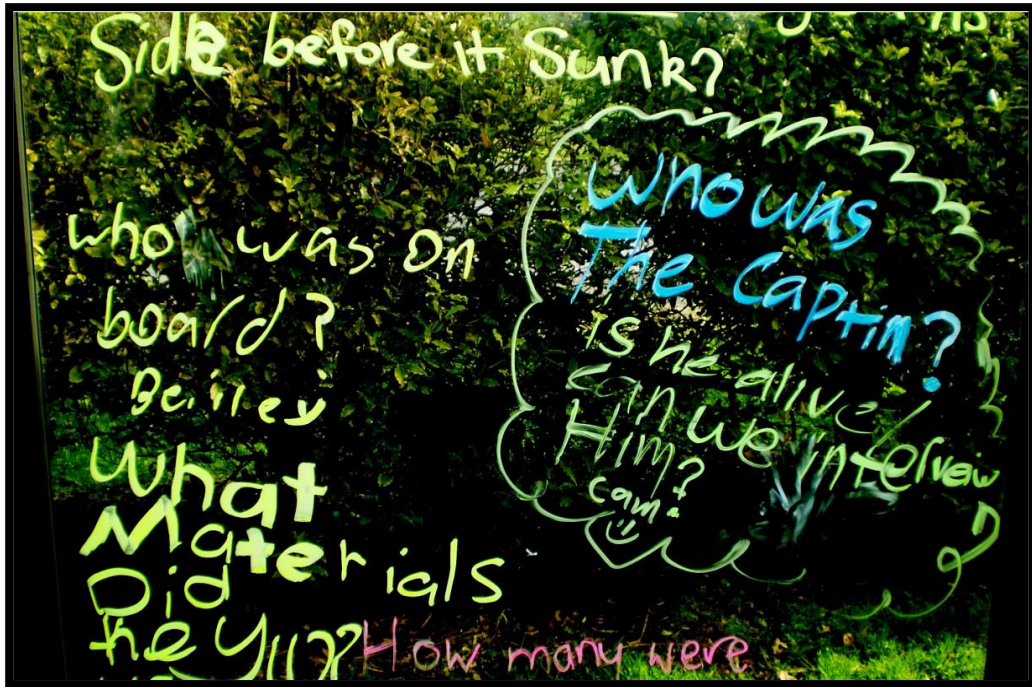 Side before it Sunk?
who was on
board?
Bailey
What
Materials
Did
they
Who was
The Captin?
is he alive/
can we interveiw
Him?
cam?
How many were